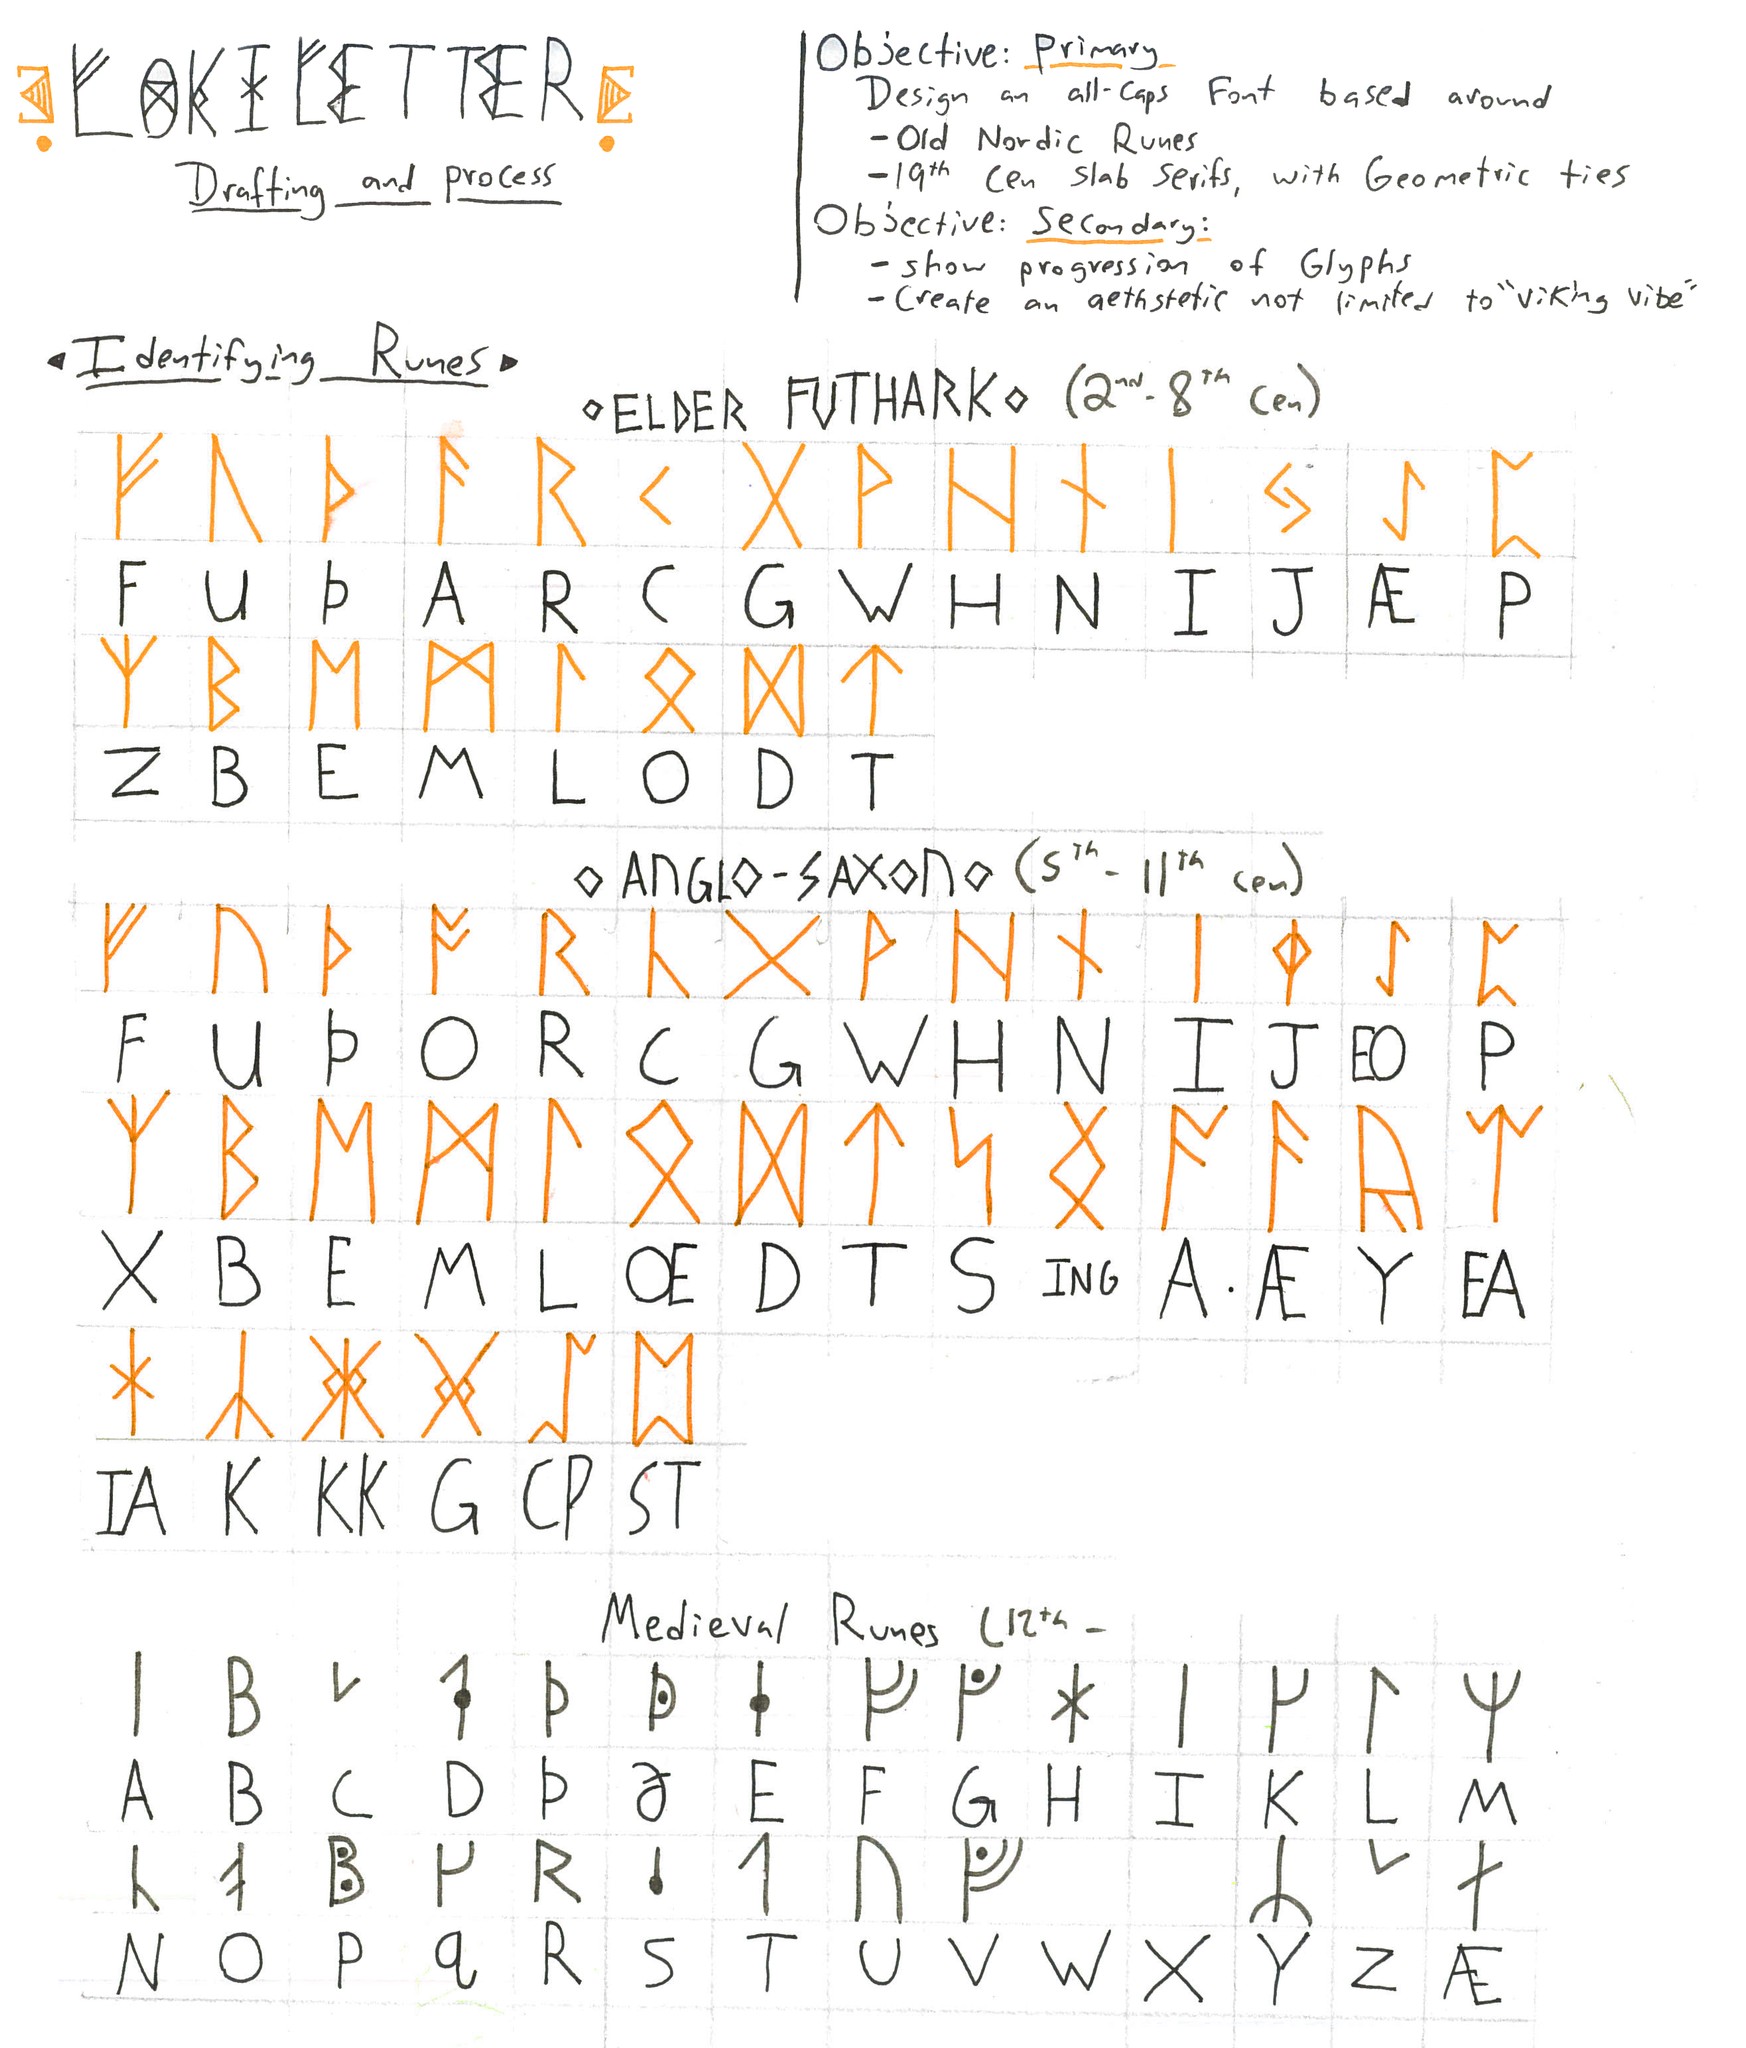 LOKILETTER
Drafting and process
Objective: Primary
Design an all-caps Font based around
- Old Nordic Runes
- 19th Cen slab serifs, with Geometric ties
Objective: Secondary:
- show progression of Glyphs
- Create an aethstetic not limited to "Viking Vibe"
Identifying Runes
ELDER FUTHARK (2nd - 8th Cen)
ᚠ ᚢ ᚦ ᚨ ᚱ ᚲ ᚷ ᚹ ᚺ ᚾ ᛁ ᛃ ᛇ ᛈ
F U Þ A R C G W H N I J Æ P
ᛉ ᛒ ᛖ ᛗ ᛚ ᛟ ᛞ ᛏ
Z B E M L O D T
ANGLO-SAXON (5th - 11th Cen)
ᚠ ᚢ ᚦ ᚩ ᚱ ᚳ ᚷ ᚹ ᚻ ᚾ ᛁ ᛄ ᛇ ᛈ
F U Þ O R C G W H N I J EO P
ᛉ ᛒ ᛖ ᛗ ᛚ ᛟ ᛞ ᛏ ᛋ ᛝ ᚪ ᚫ ᚣ ᛠ
X B E M L OE D T S ING A · Æ Y EA
ᛡ ᛣ ᛤ ᚸ ᛢ ᛥ
IA K KK G CP ST
Medieval Runes (12th -
A B C D Þ ∂ E F G H I K L M
N O P q R S T U V W X Y Z Æ